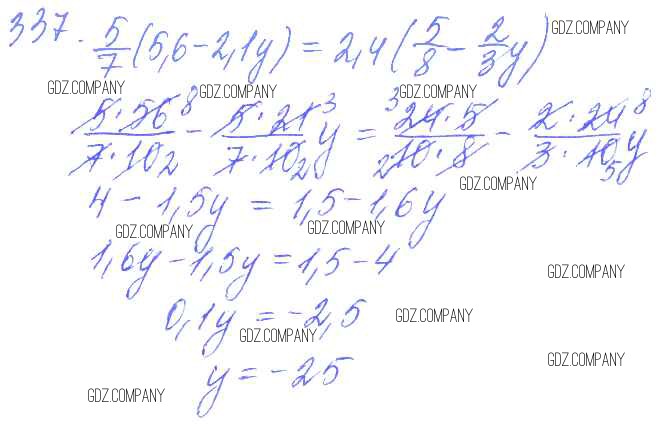 337. 5/7 (5,6 - 2,1y) = 2,4 (5/8 - 2/3 y) GDZ.COMPANY
GDZ.COMPANY GDZ.COMPANY GDZ.COMPANY
5·56 8 / 7·10 2 - 5·21 3 / 7·10 2 y = 3 24·5 / 2 10·8 - 2·24 8 / 3·10 5 y
GDZ.COMPANY
4 - 1,5y = 1,5 - 1,6y
GDZ.COMPANY GDZ.COMPANY
1,6y - 1,5y = 1,5 - 4
GDZ.COMPANY
0,1y = -2,5 GDZ.COMPANY
GDZ.COMPANY
y = -25 GDZ.COMPANY
GDZ.COMPANY